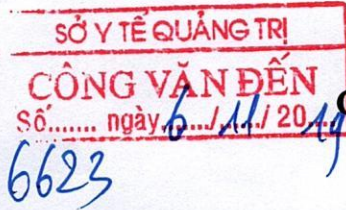 SỞ Y TẾ QUẢNG TRỊ
CÔNG VĂN ĐẾN
Số....... ngày 6/11/2019
6623